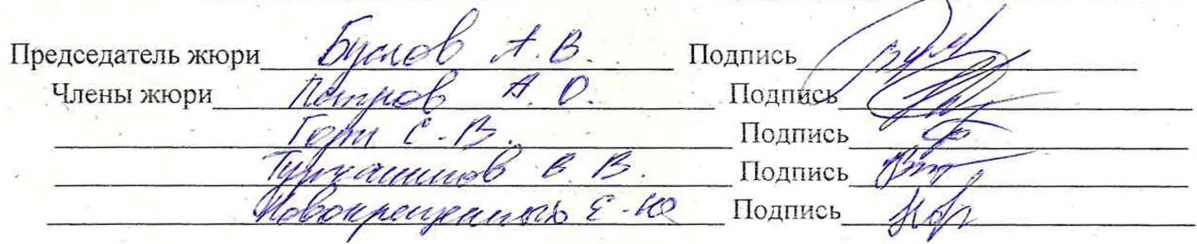 Председатель жюри Буслов А.В. Подпись
Члены жюри Петров А.О. Подпись
С.В. Подпись
В.В. Подпись
Новокрещенных Е.Ю Подпись